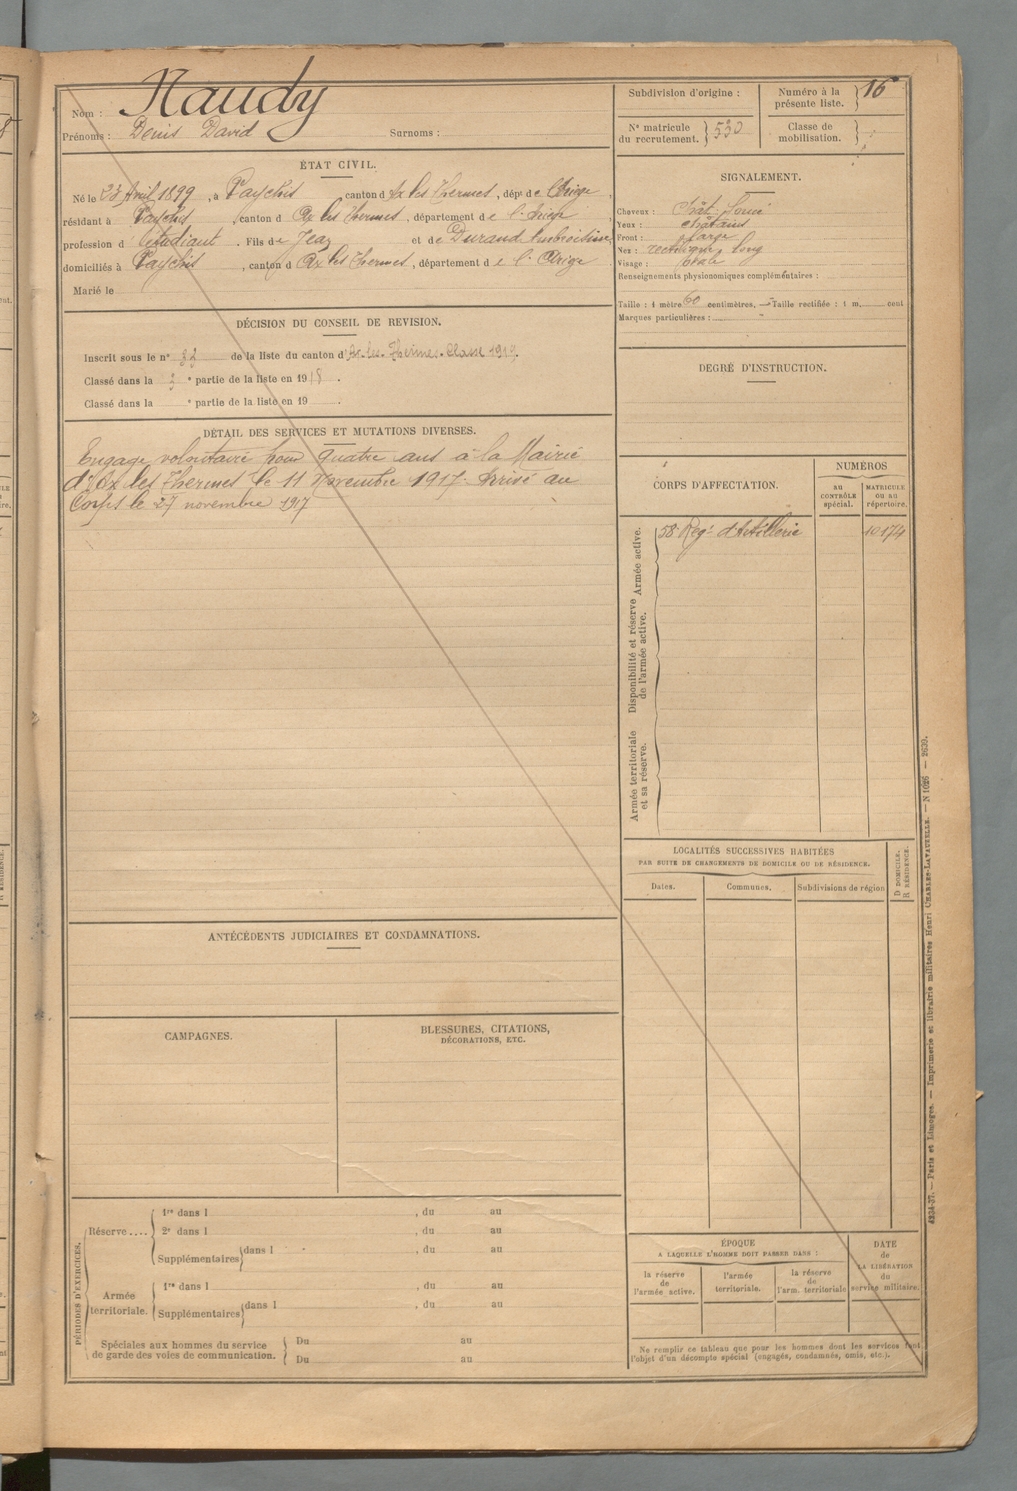 Nom : Naudy
Prénoms : Denis David Surnoms :
Subdivision d'origine :
Numéro à la présente liste. 16
N° matricule du recrutement. 530
Classe de mobilisation.
ÉTAT CIVIL.
Né le 23 Avril 1899, à canton d'Ax les Thermes, dépt de l'Ariège,
résidant à canton d'Ax les Thermes, département de l'Ariège,
profession d'étudiant. Fils de Jean et de Durand Ambroisine,
domiciliés à , canton d'Ax les Thermes, département de l'Ariège.
Marié le
SIGNALEMENT.
Cheveux : chât. foncé
Yeux : châtains
Front : large
Nez : rectiligne long
Visage : ovale
Renseignements physionomiques complémentaires :
Taille : 1 mètre 60 centimètres. — Taille rectifiée : 1 m. cent
Marques particulières :
DÉCISION DU CONSEIL DE REVISION.
Inscrit sous le n° de la liste du canton d'Ax-les-Thermes. Classe 1919.
Classé dans la 3e partie de la liste en 1918.
Classé dans la e partie de la liste en 19 .
DEGRÉ D'INSTRUCTION.
DÉTAIL DES SERVICES ET MUTATIONS DIVERSES.
Engagé volontaire pour quatre ans à la Mairie
d'Ax les Thermes le 11 Novembre 1917. Arrivé au
Corps le 27 novembre 1917
CORPS D'AFFECTATION.
NUMÉROS
AU CONTRÔLE spécial.
MATRICULE OU AU répertoire.
Armée active.
58e Regt d'Artillerie 10174
Disponibilité et réserve de l'armée active.
Armée territoriale et sa réserve.
LOCALITÉS SUCCESSIVES HABITÉES
PAR SUITE DE CHANGEMENTS DE DOMICILE OU DE RÉSIDENCE.
Dates. Communes. Subdivisions de région
D DOMICILE. R RÉSIDENCE.
ANTÉCÉDENTS JUDICIAIRES ET CONDAMNATIONS.
CAMPAGNES.
BLESSURES, CITATIONS,
DÉCORATIONS, ETC.
PÉRIODES D'EXERCICES.
Réserve....
1re dans l , du au
2e dans l , du au
Supplémentaires dans l , du au
Armée territoriale.
1re dans l , du au
Supplémentaires dans l , du au
Spéciales aux hommes du service
de garde des voies de communication.
Du au
Du au
ÉPOQUE
A LAQUELLE L'HOMME DOIT PASSER DANS :
la réserve de l'armée active.
l'armée territoriale.
la réserve de l'arm. territoriale
DATE de LA LIBÉRATION du service militaire.
Ne remplir ce tableau que pour les hommes dont les services font
l'objet d'un décompte spécial (engagés, condamnés, omis, etc.).
— Paris et Limoges. — Imprimerie et librairie militaires Henri CHARLES-LAVAUZELLE. —